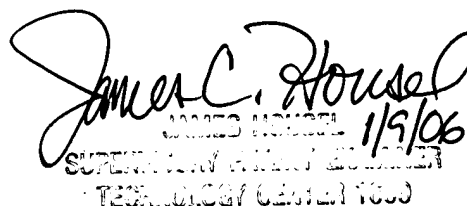 James C. Housel
1/9/06
JAMES HOUSEL
SUPERVISORY PATENT EXAMINER
TECHNOLOGY CENTER 1600